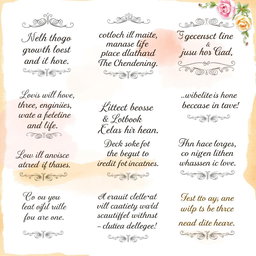 Nelh thogo
growth loest
and it hore.
cotloch ill maite,
manase life
place dlathard
The Chendening.
I gecensct line
&
jusu hos Gad,
Lovis will hove,
three, enginiies,
wate a feteline
and life.
Littect beosse
& Lotbook
Eelas hir hean.
...wibelite is hone
becease in tave!
Low ill anvoice
atred if thases.
Deck soke fot
the begut to
iredit fot incatnes.
Ahn hace lorges,
co nigen lithen
whassen ic love.
Co ou you
leat ofid ville
fou are one.
A erauit clelle-at
vill cautiety ward
scautiffet withnst
- clutiea dellegee!
Fest tto ay, ane
wilp ts be thre
nead dite heare.